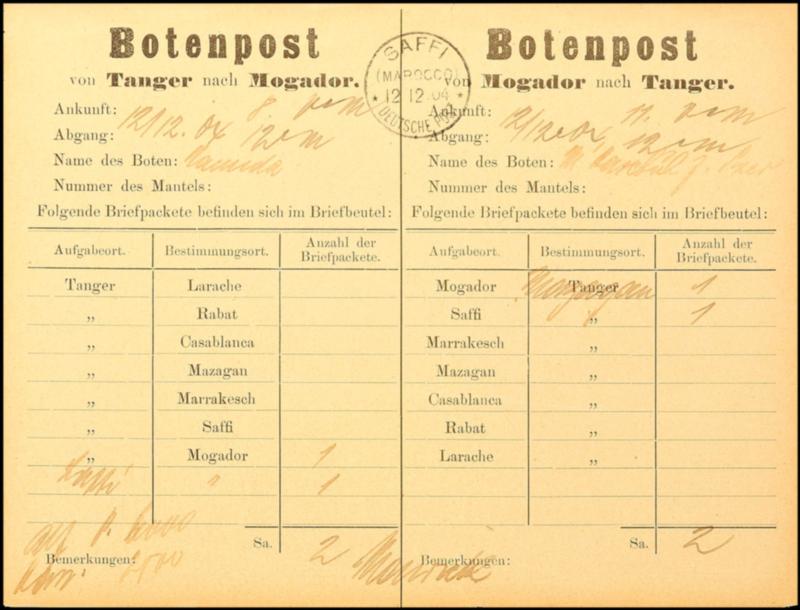 Botenpost
von Tanger nach Mogador.
Ankunft: 8. vorm
Abgang: 12/12.04 12 vm
Name des Boten:
Nummer des Mantels:
Folgende Briefpackete befinden sich im Briefbeutel:
Aufgabeort. Bestimmungsort. Anzahl der Briefpackete.
Tanger Larache
„ Rabat
„ Casablanca
„ Mazagan
„ Marrakesch
„ Saffi
„ Mogador 1
Saffi " 1
Sa. 2
Bemerkungen:
SAFFI
(MAROCCO)
12 12.04
* DEUTSCHE POST *
Botenpost
von Mogador nach Tanger.
Ankunft: 11. vorm
Abgang: 12/12.04 12 vm
Name des Boten:
Nummer des Mantels:
Folgende Briefpackete befinden sich im Briefbeutel:
Aufgabeort. Bestimmungsort. Anzahl der Briefpackete.
Mogador Tanger Mazagan 1
Saffi „ 1
Marrakesch „
Mazagan „
Casablanca „
Rabat „
Larache „
Sa. 2
Bemerkungen: